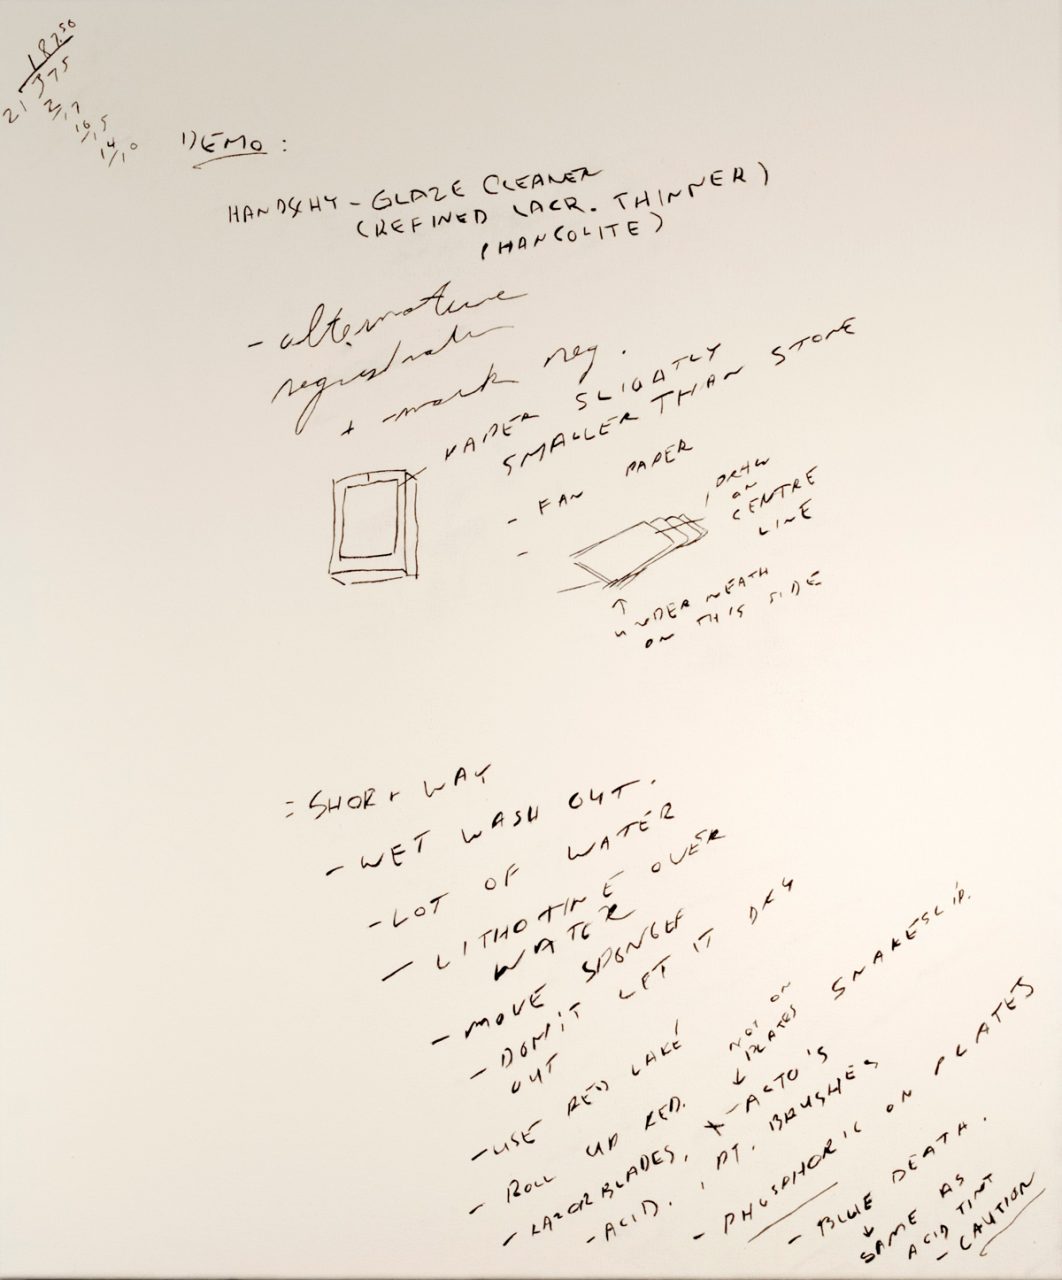 187.50
375
21
2/17
16/15
14/10
DEMO :
HANDSCHY - GLAZE CLEANER
(REFINED LACR. THINNER)
(HANCOLITE)
- alternative
registration
+ -mark reg.
PAPER SLIGHTLY
SMALLER THAN STONE
- FAN PAPER
-
DRAW
ON
CENTRE
LINE
↑
UNDERNEATH
ON THIS SIDE
= SHORT WAY
- WET WASH OUT.
- LOT OF WATER
- LITHOTINE OVER
WATER
- MOVE SPONGES
- DON'T LET IT DRY
OUT
- USE RED LAKE
- ROLL UP RED.
NOT ON
PLATES
↓
- RAZORBLADES, X-ACTO'S SNAKESLIP.
- ACID. , PT. BRUSHES
- PHOSPHORIC ON PLATES
- BLUE DEATH.
↓
SAME AS
ACID TINT
- CAUTION